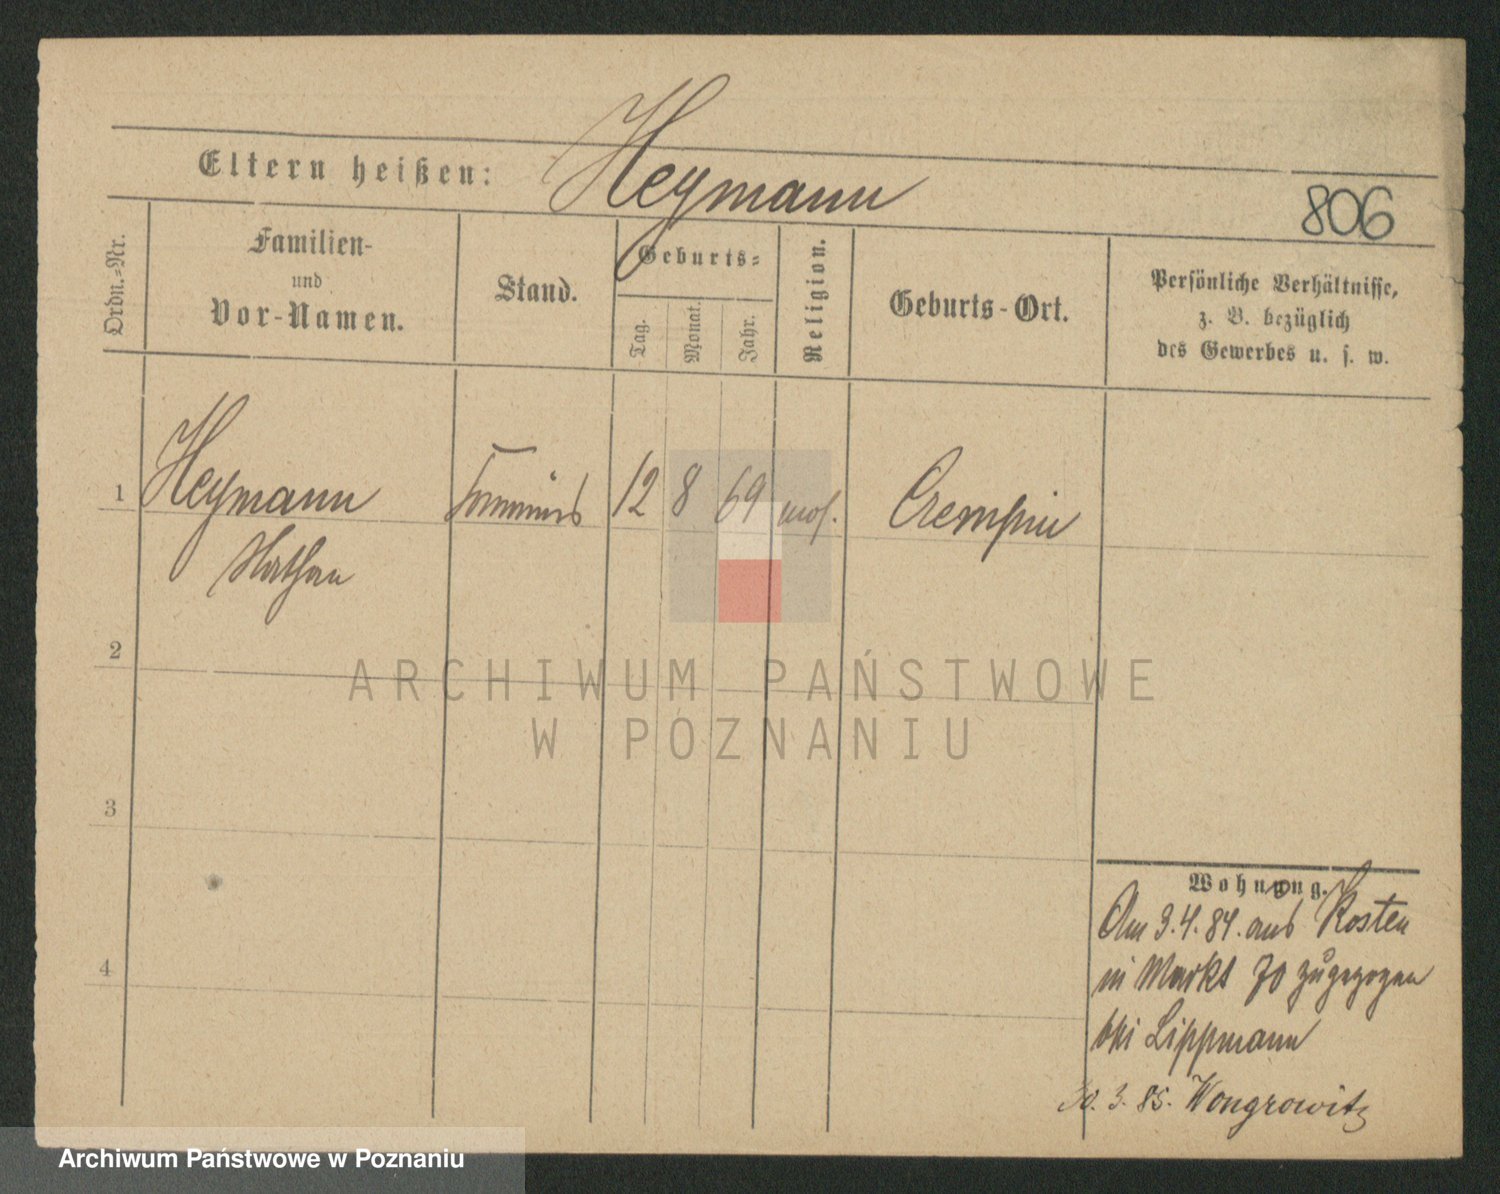 Eltern heißen: Heymann
806
Ordn.-Nr.
Familien-
und
Vor-Namen.
Stand.
Geburts-
Tag.
Monat.
Jahr.
Religion.
Geburts-Ort.
Persönliche Verhältnisse,
z. B. bezüglich
des Gewerbes u. s. w.
1 Heymann 12 8 69 mos. Czempin
Nathan
2
3
4
ARCHIWUM PAŃSTWOWE
W POZNANIU
Wohnung.
Am 3.4.84. aus Kosten
in Markt 70 zugezogen
bei Lippmann
30. 3. 85. Wongrowitz
Archiwum Państwowe w Poznaniu